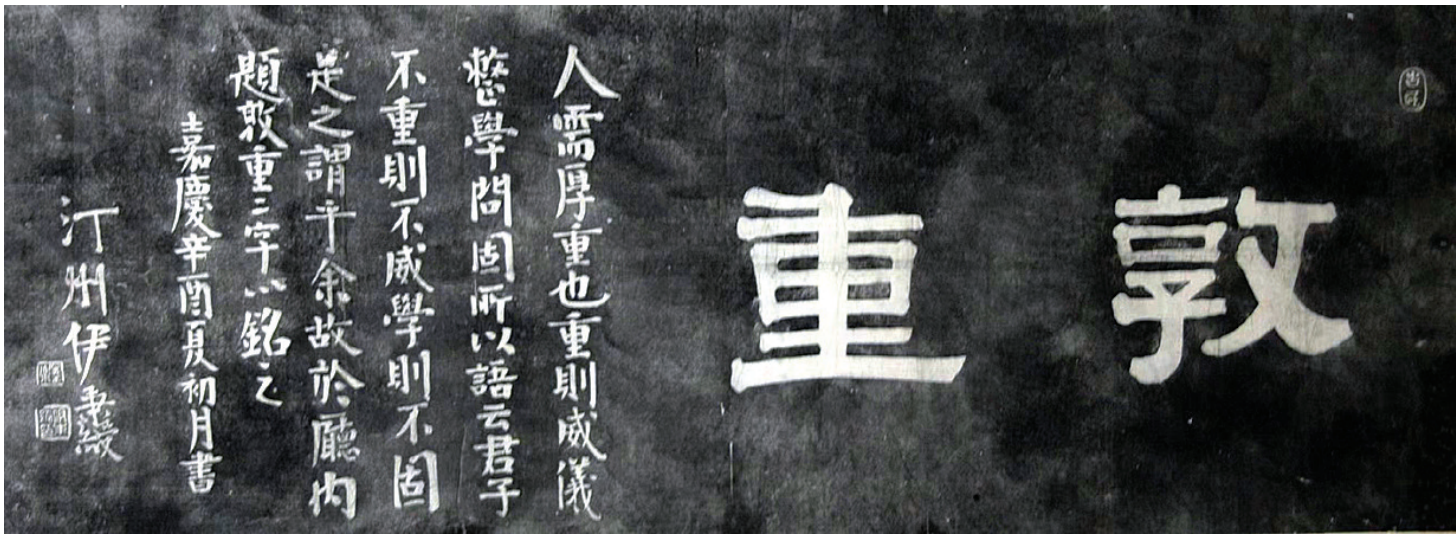 敦重
人需厚重也重則威儀
整學問固所以語云君子
不重則不威學則不固
是之謂乎余故於廳內
題敦重二字以銘之
嘉慶辛酉夏初月書
汀州伊秉綬